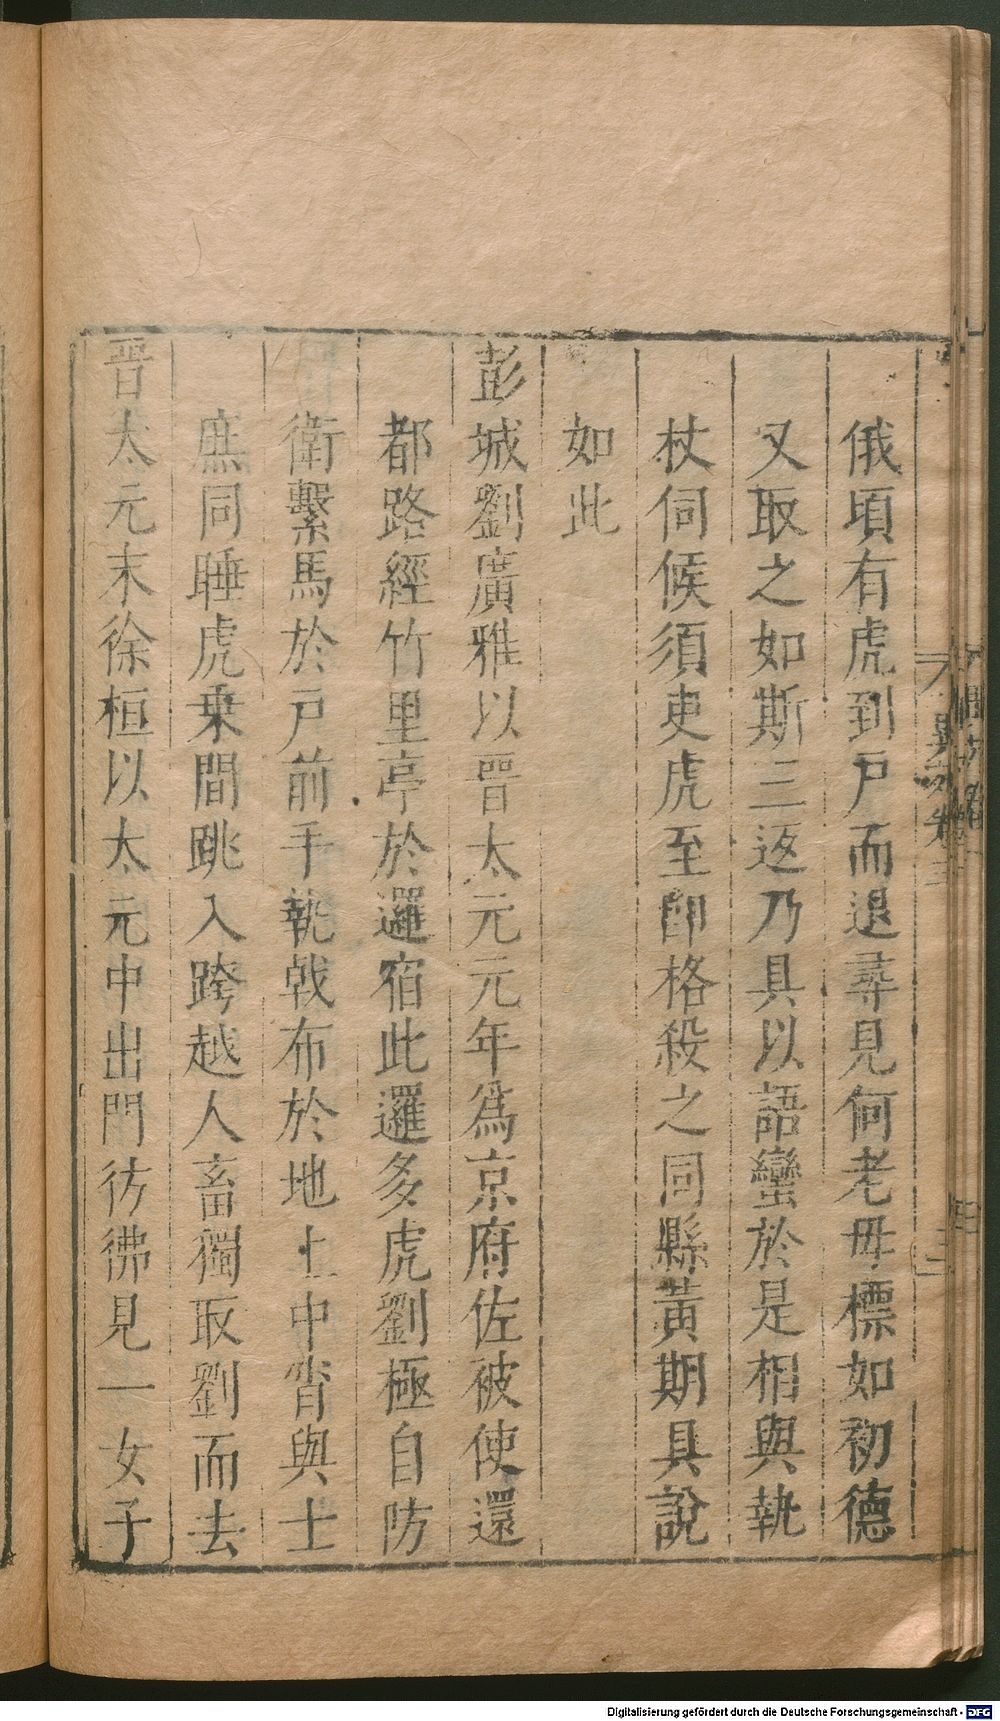 俄頃有虎到戶而退尋見何老母標如初德
又取之如斯三返乃具以語蠻於是相與執
杖伺候須臾虎至卽格殺之同縣黃期具說
如此
彭城劉廣雅以晉太元元年爲京府佐被使還
都路經竹里亭於邏宿此邏多虎劉極自防
衛繫馬於戶前手執戟布於地上中宵與士
庶同睡虎乗間跳入跨越人畜獨取劉而去
晉太元末徐桓以太元中出門彷彿見一女子
Digitalisierung gefördert durch die Deutsche Forschungsgemeinschaft - DFG